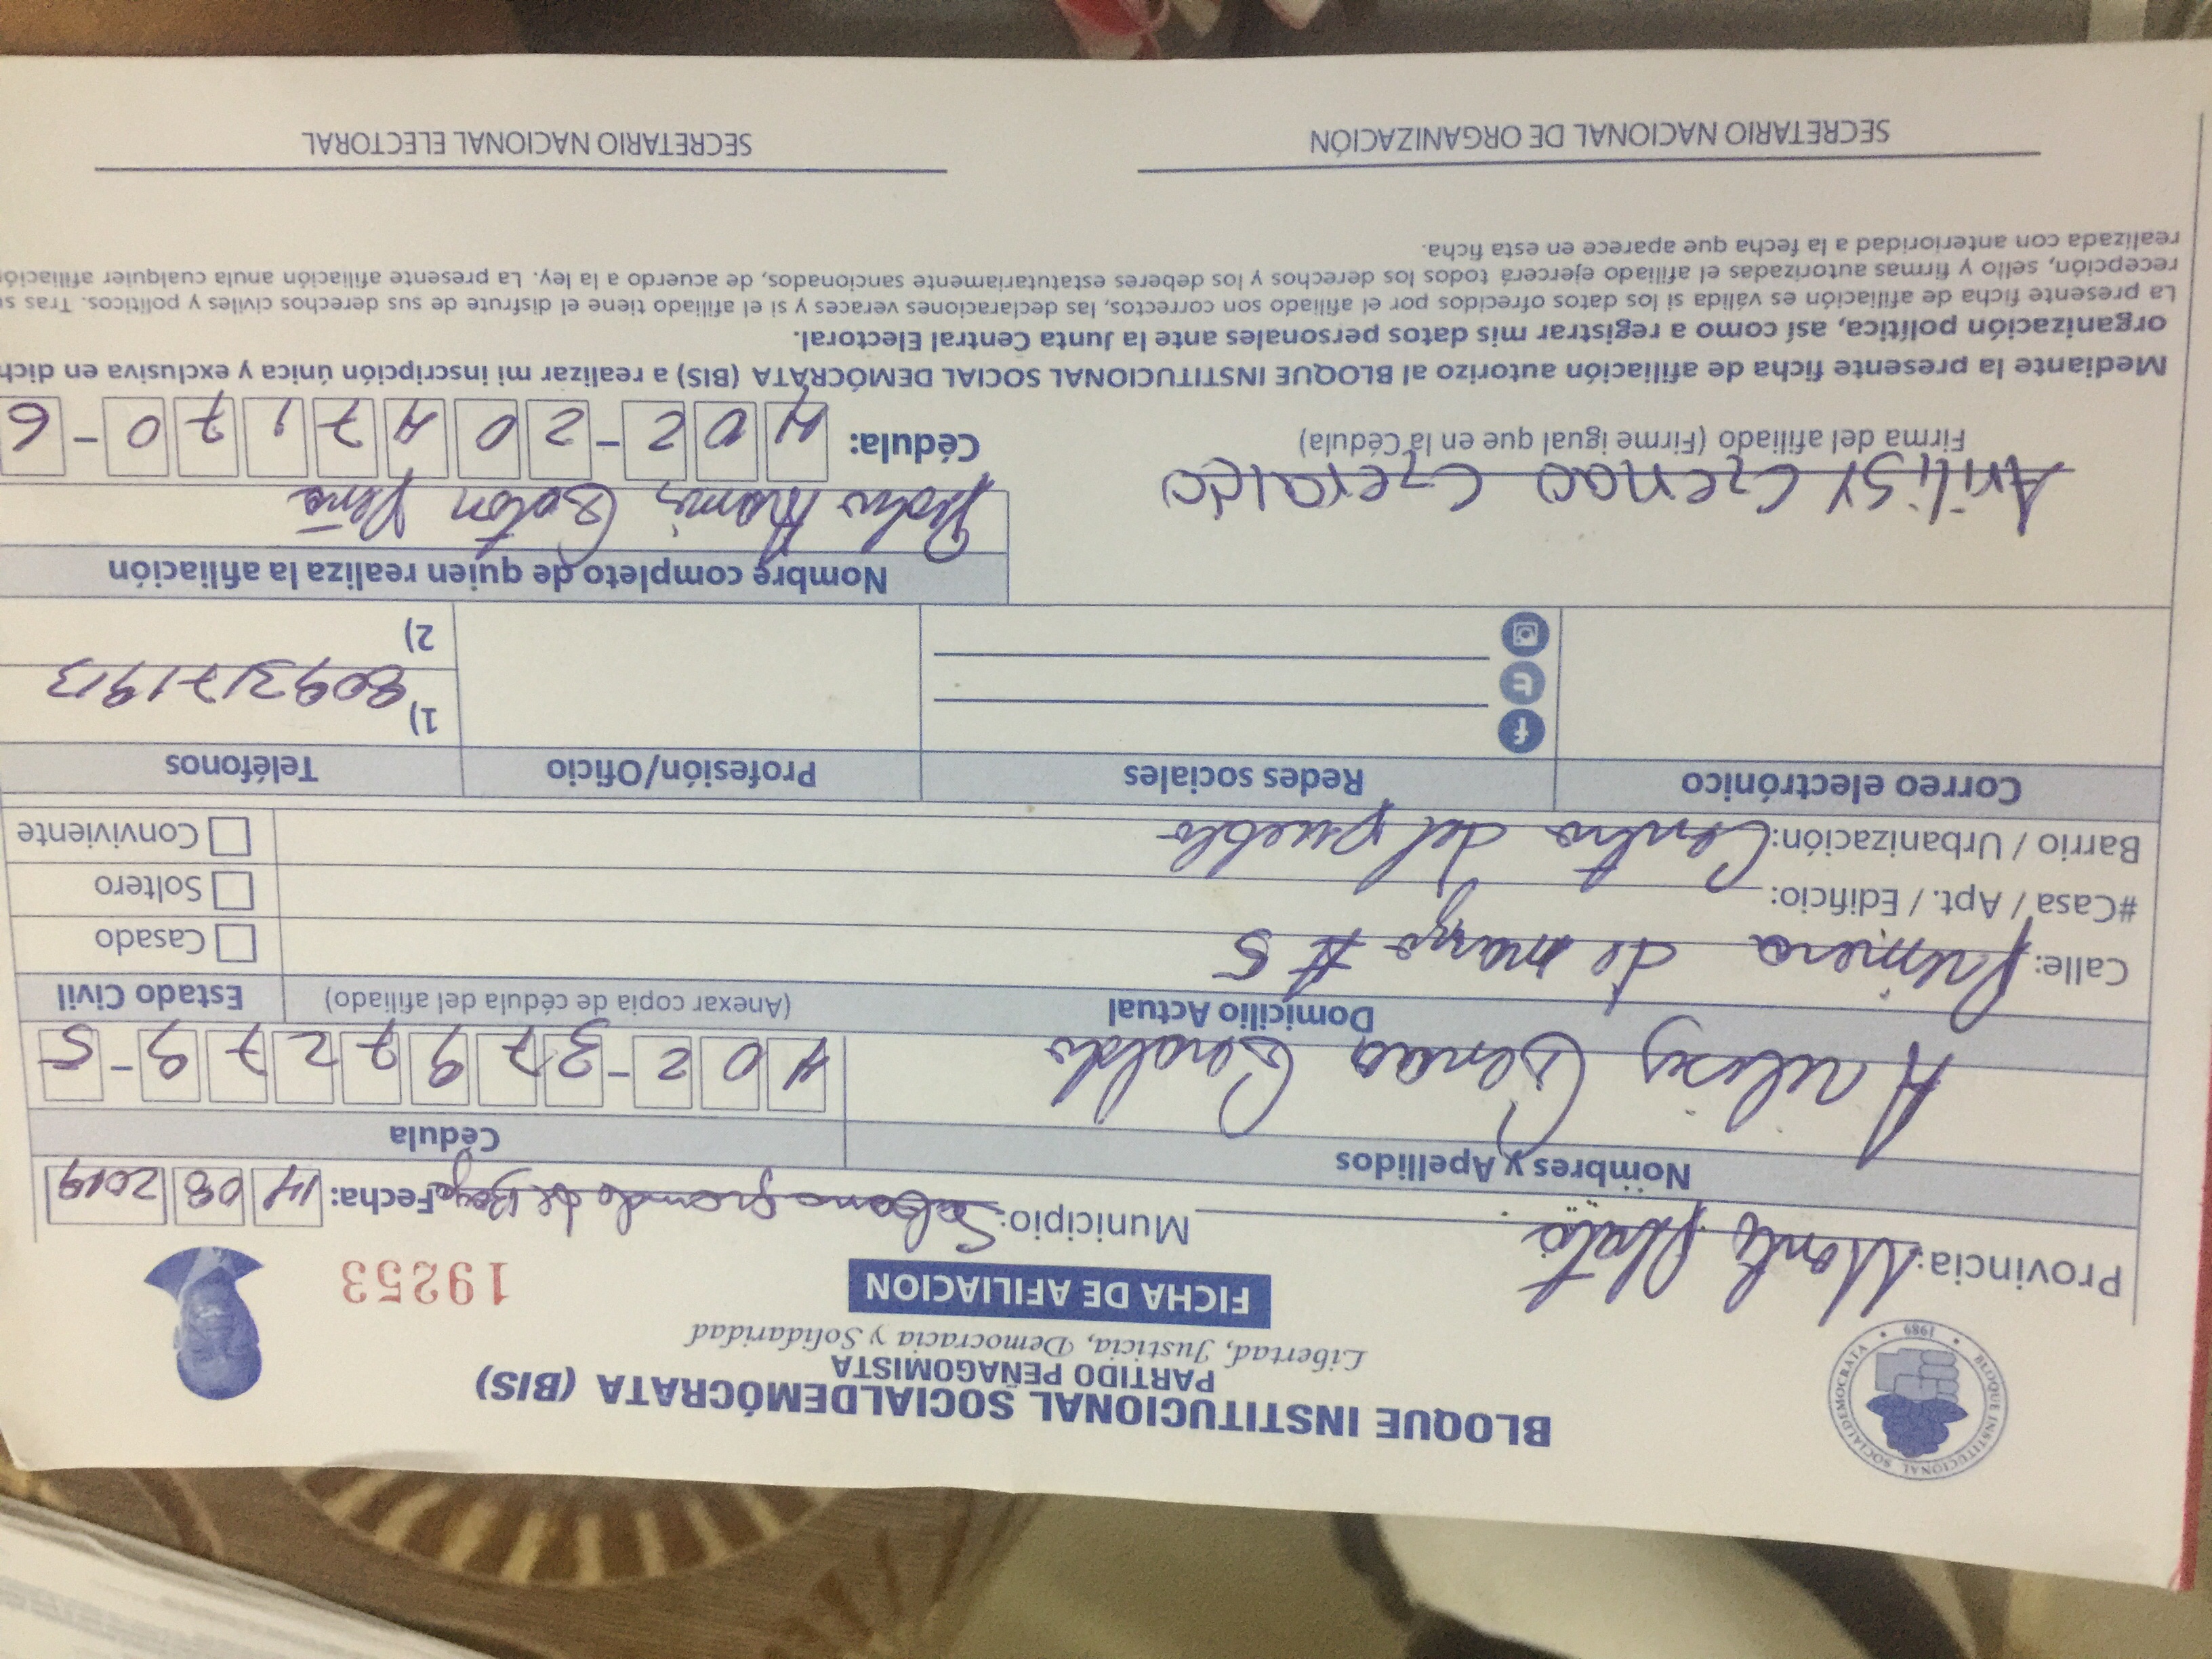 BLOQUE INSTITUCIONAL SOCIALDEMÓCRATA (BIS)
PARTIDO PEÑAGOMISTA
Libertad, Justicia, Democracia y Solidaridad
FICHA DE AFILIACION
19253
BLOQUE INSTITUCIONAL SOCIALDEMOCRATA • 1989 •
Provincia: Monte Plata Municipio: Sabana grande de Boya Fecha: 14 08 2019
Nombres y Apellidos Cédula
Arilisy Genao Geraldo 402-3799727 9-5
Domicilio Actual (Anexar copia de cédula del afiliado) Estado Civil
Calle: Primera de marzo # 5 Casado
#Casa / Apt. / Edificio: Soltero
Barrio / Urbanización: Centro del pueblo Conviviente
Correo electrónico Redes sociales Profesión/Oficio Teléfonos
1) 8093171913
2)
Nombre completo de quien realiza la afiliación
Gotón Peña
AriliSY Genao Geraldo
Firma del afiliado (Firme igual que en la Cédula) Cédula: 402-2047170-6
Mediante la presente ficha de afiliación autorizo al BLOQUE INSTITUCIONAL SOCIAL DEMÓCRATA (BIS) a realizar mi inscripción única y exclusiva en dich
organización política, así como a registrar mis datos personales ante la Junta Central Electoral.
La presente ficha de afiliación es válida si los datos ofrecidos por el afiliado son correctos, las declaraciones veraces y si el afiliado tiene el disfrute de sus derechos civiles y políticos. Tras s
recepción, sello y firmas autorizadas el afiliado ejercerá todos los derechos y los deberes estatutariamente sancionados, de acuerdo a la ley. La presente afiliación anula cualquier afiliación
realizada con anterioridad a la fecha que aparece en esta ficha.
SECRETARIO NACIONAL DE ORGANIZACIÓN SECRETARIO NACIONAL ELECTORAL